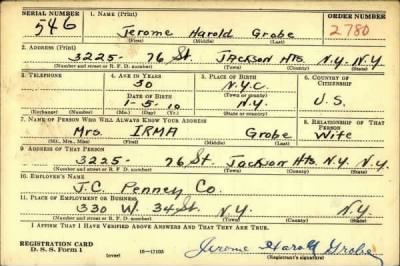 SERIAL NUMBER 1. Name (Print) ORDER NUMBER
546 Jerome Harold Grobe 2780
(First) (Middle) (Last)
2. Address (Print)
3225- 76 St. Jackson Hts. N.Y. N.Y.
(Number and street or R. F. D. number) (Town) (County) (State)
3. Telephone 4. Age in Years 5. Place of Birth 6. Country of Citizenship
30 N.Y.C. U.S.
Date of Birth (Town or county)
1-5-10 N.Y.
(Exchange) (Number) (Mo.) (Day) (Yr.) (State or country)
7. Name of Person Who Will Always Know Your Address 8. Relationship of That Person
Mrs. IRMA Grobe Wife
(Mr., Mrs., Miss) (First) (Middle) (Last)
9. Address of That Person
3225- 76 St. Jackson Hts. N.Y. N.Y.
(Number and street or R. F. D. number) (Town) (County) (State)
10. Employer's Name
J.C. Penney Co.
11. Place of Employment or Business
330 W. 34 St. N.Y. N.Y.
(Number and street or R. F. D. number) (Town) (County) (State)
I Affirm That I Have Verified Above Answers and That They Are True.
REGISTRATION CARD
D. S. S. Form 1 (over) 16—17105 Jerome Harold Grobe
(Registrant's signature)